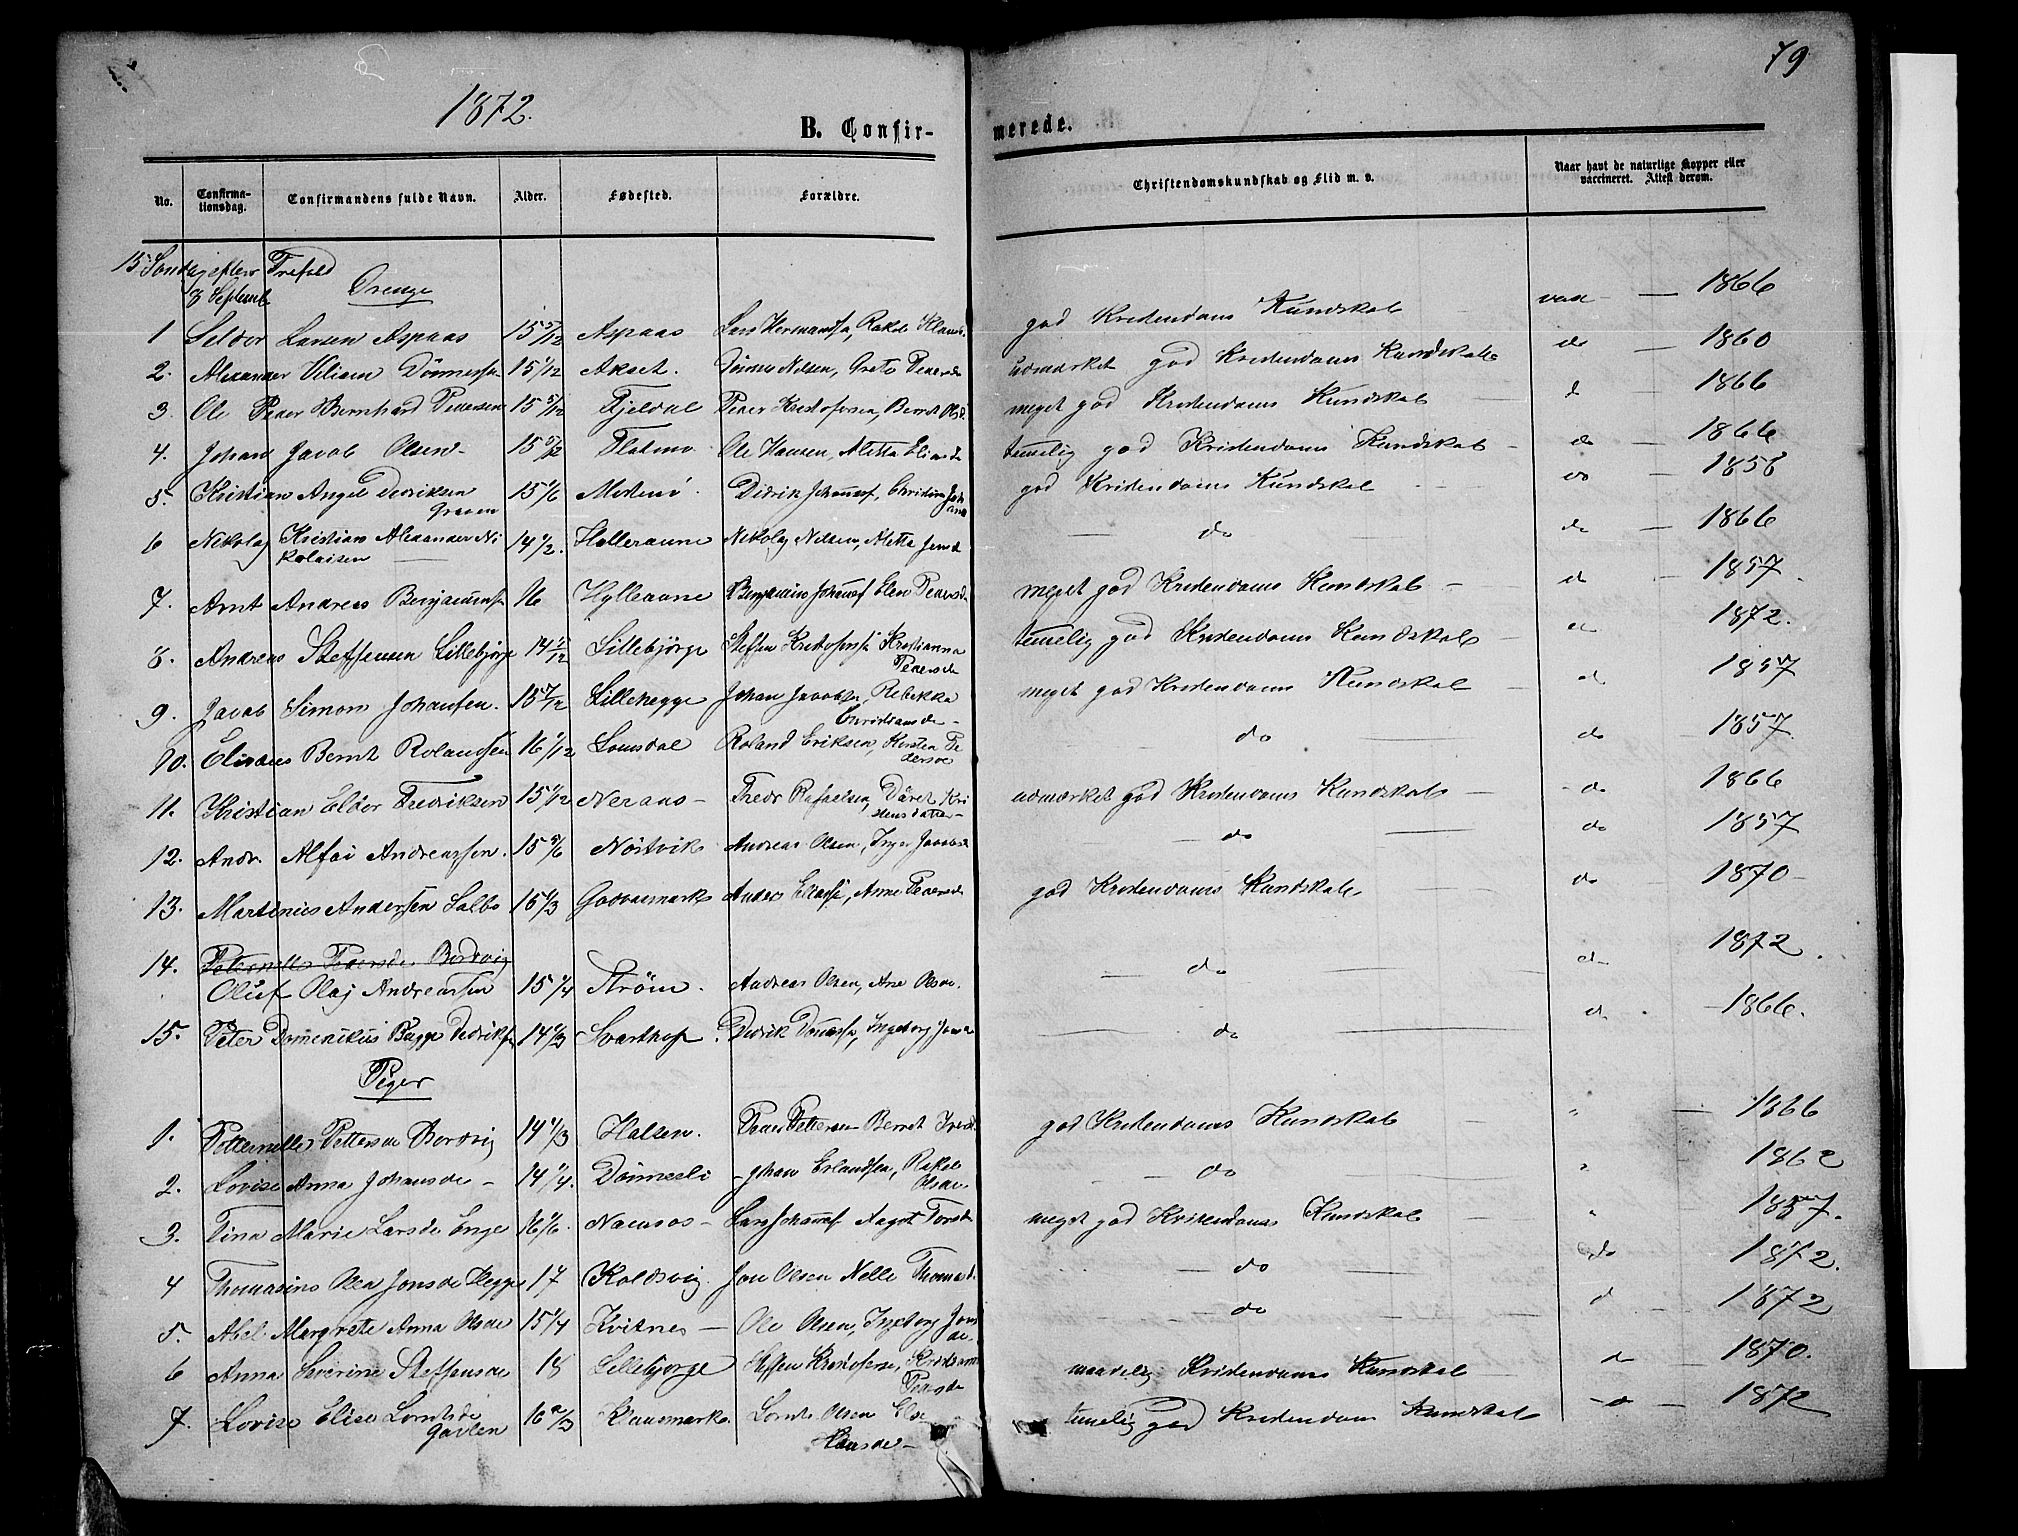 79
1872.
B. Confir-
merede.
No.
Confirma-
tionsdag.
Confirmandens fulde Navn.
Alder.
Fødested.
Forældre.
Christendomskundskab og Flid m. v.
Naar havt de naturlige Kopper eller
vaccineret. Attest derom.
15 Søndag efter Trefold
8 Septemb Drenge
1 Seldor Larsen Aspaas 15 5/12 Aspaas Lars Hermansen, Rakel god Kristendoms Kundskab vac — 1866
2. Alexander Viliam Dönnessen 15 1/12 Akset. Dönnes Nilsen, Grete Pedersd udmærket god Kristendoms Kundskab do — 1860
3. Ole Peder Bernhard Pedersen 15 5/12 Fjeldal Peder Kristofersen, Berndt Olsd meget god Kristendoms Kundskab d 1866
4. Johan Jacob Olsen 15 5/12 Flatmo Ole Hansen, Aletta Eliasd temelig god Kristendoms Kundskab do — 1866
5. Kristian Angel Dedriksen 15 1/6 Modenö Didrik Johannesf, Christina Joh god Kristendoms Kundskab do — 1858
Graven
6 Nikolaj Kristian Alexander Ni 14 1/2. Halleraune Nikolaj Nilsen, Aletta Jensd do do — 1866
kolaisen
7. Arnt Andreas Benjaminsen 16 Hylleaune Benjamin Johannesf Elen Pedersd meget god Kristendoms Kundskab d — 1857.
8. Andreas Steffensen Lillebjörge 14 11/12 Lillebjörge Steffen Kristofersen Kristianna temelig god Kristendoms Kundskab d 1872.
Pedersd
9. Jacob Simon Johansen. 15 7/12 Lillehegge Johan Jacobsen, Rebekka meget god Kristendoms Kundskab d 1857
Christiansd
10. Elisæus Bernt Rolandsen 16 1/12 Lomsdal Roland Eriksen, Kirsten Pe do do 1857.
dersd
11. Kristian Eldor Fredriksen 15 1/12 Neraas Fredr Rafaelsen, Däret Kri udmærket god Kristendoms Kundskab do 1866
stensdatter
12. Andr. Alfai Andreassen. 15 5/6 Nöstvik Andreas Olsen, Inger Jacobsd do do 1857
13. Martinus Andersen Salbo 15 1/3 Godvaemark Anders Eliasf, Anne Pedersd god Kristendoms Kundskab do 1870
14. Peternelle Pedersd. Bordvig
Oluf Olaj Andreassen 15 1/4 Ström. Andreas Olsen, Ane Olsd. do d 1872.
15. Peter Domenikus Bagge Dedriksen 14 1/3 Svarthop. Dedrik Dönnesen, Ingeborg Jonsd do d 1866.
Piger
1. Petternelle Pettersd Bordvig 14 1/3 Halsen. Peder Pettersen Berret god Kristendoms Kundskab " — 1866
2. Lovise Anna Johansd 14 1/4. Dönnesli Johan Erlandsen, Rakel do " 1862
Olsd.
3. Tina Marie Larsd Enge 16 1/6. Namsos Lars Johannesf Aagot Torstd meget god Kristendoms Kundskab " 1857.
4 Thomasine Olea Jonsd Hegge 17 Koldsvig. Jon Olsen Nelle Thomasd. do do 1872.
5. Abel Margrete Anna Olsd 15 1/4 Kvitnes Ole Olsen, Ingeborg Jons do d — 1872
6 Anna Severine Steffensd 18 Lillebjorge Steffen Kristofersen, Kristianna maadelig Kristendoms Kundskab d — 1870.
Pedersd
7. Lovise Elise Lorntsd 16 2/3 Klausmark Lornts Olsen Else temelig god Kristendoms Kundskab do — 1872
Gaslen
Hansd